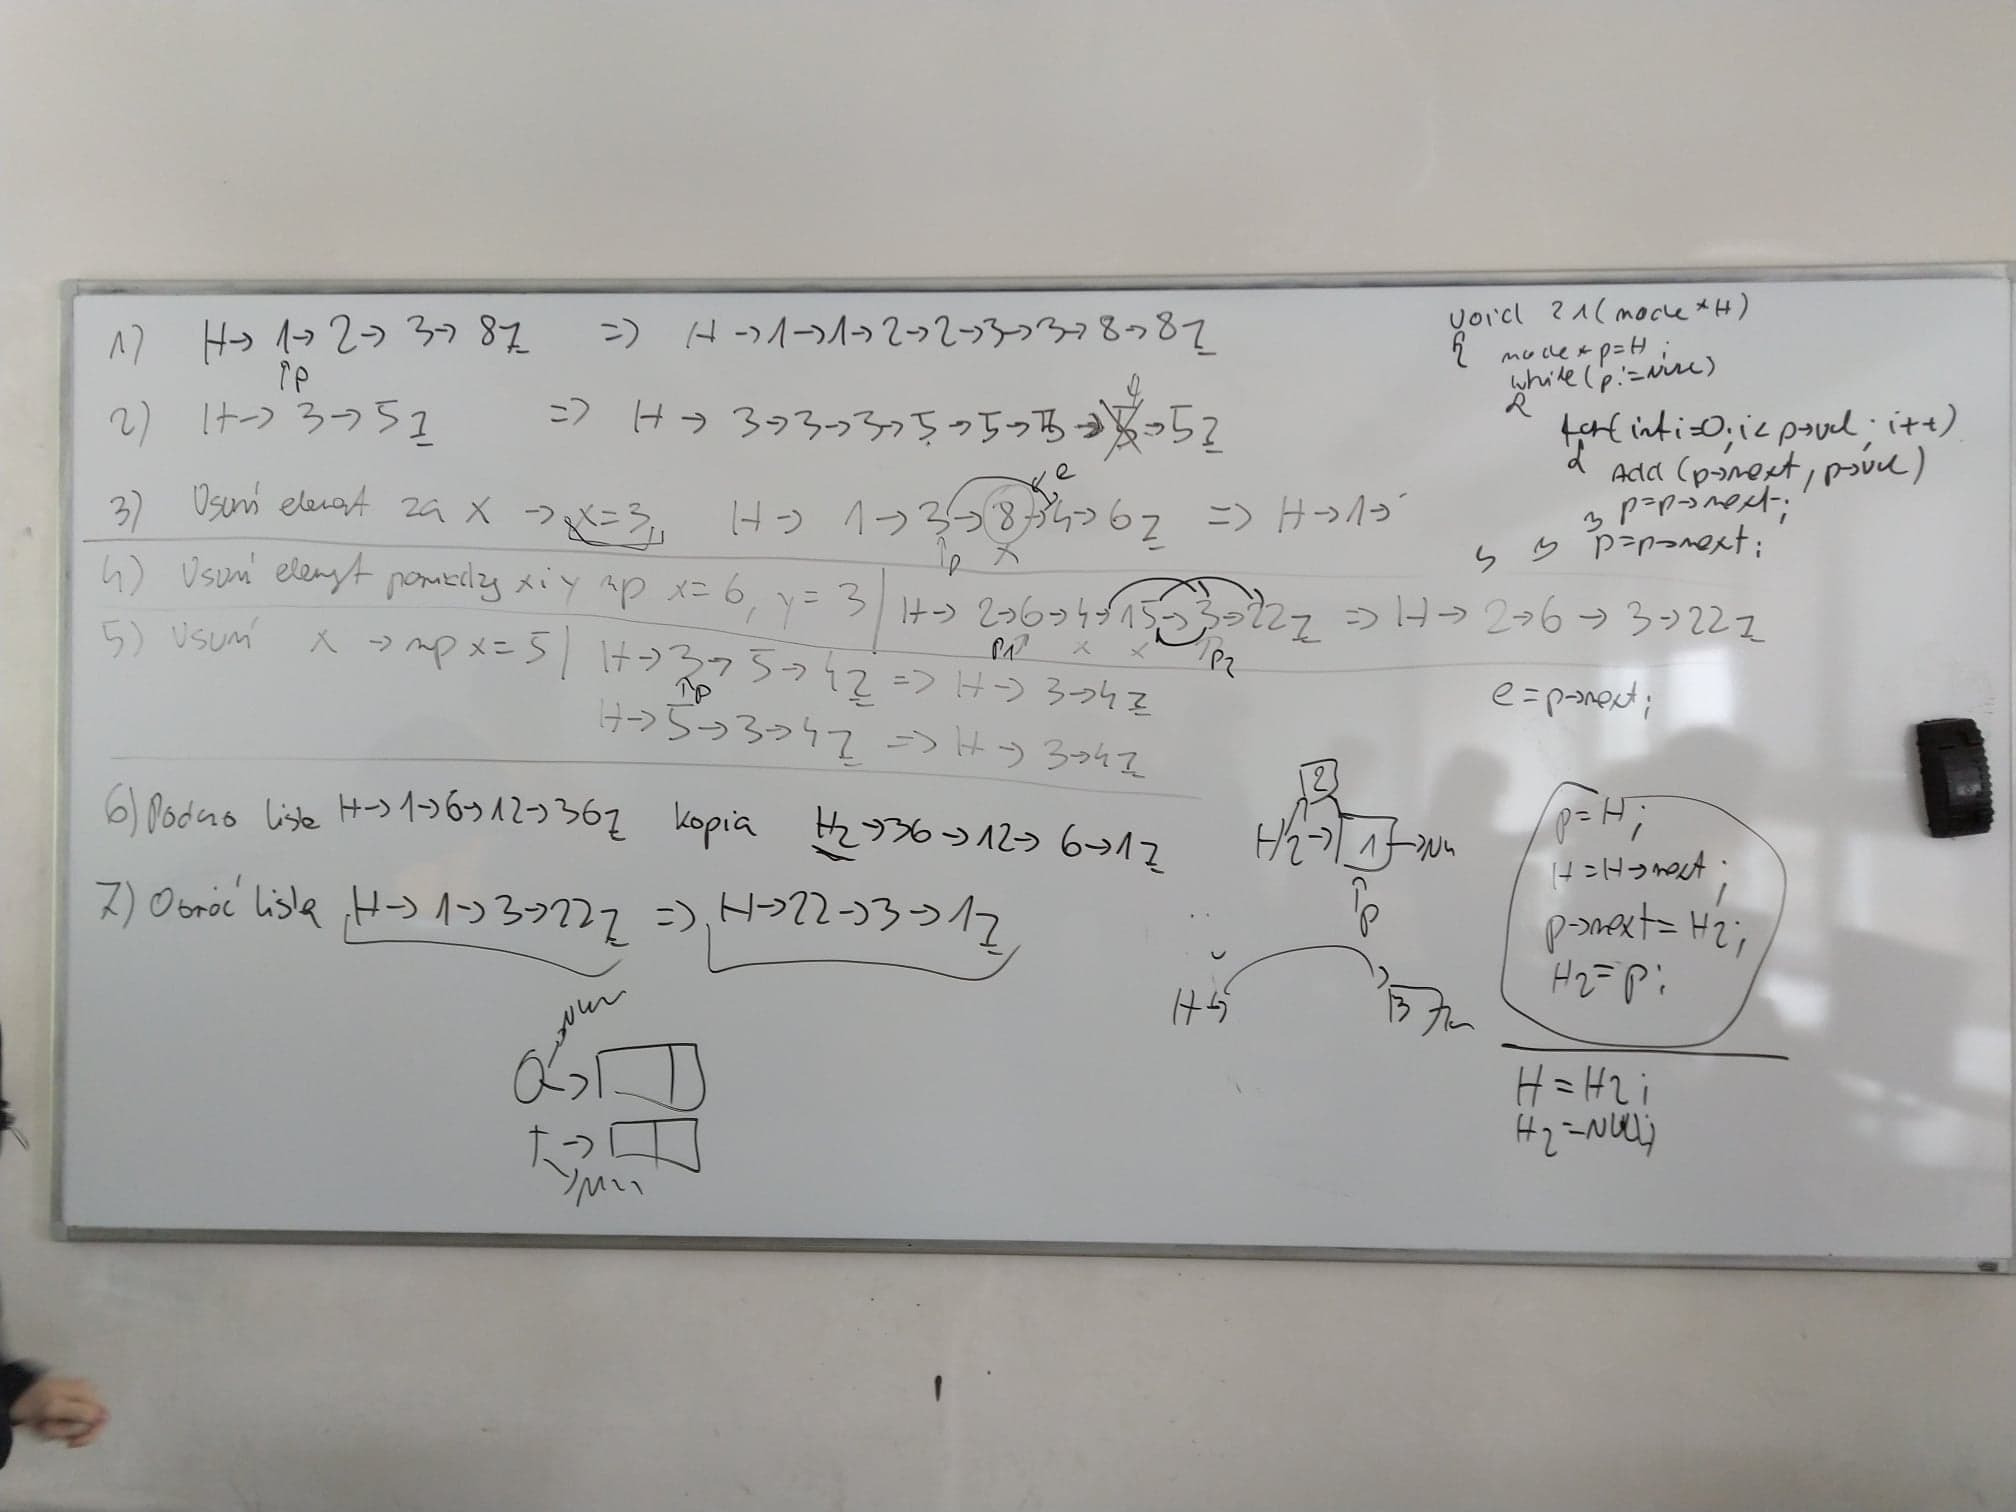 1) H→ 1→ 2→ 3→ 8Z => H→1→1→2→2→3→3→8→8Z
↑p
2) H→ 3→5Z => H→ 3→3→3→5→5→5→5→5Z
3) Usuń element za x → x=3, H→ 1→3→8→4→6Z => H→1→
e
↑p x
4) Usuń element pomiędzy x i y np x=6, y=3 | H→ 2→6→4→15→3→22Z => H→ 2→6→ 3→22Z
p1↑ x x ↑p2
5) Usuń x → np x=5 | H→3→5→4Z => H→ 3→4Z
↑p
H→5→3→4Z => H→ 3→4Z
6) Podano liste H→1→6→12→36Z kopia H2→36→12→ 6→1Z
7) Obróć liste H→ 1→3→22Z => H→22→3→1Z
void Z1(node *H)
{ node * p=H;
while(p!=NULL)
{
for(int i=0; i< p→val; i++)
{ Add (p→next, p→val)
p=p→next;
} p=p→next;
} }
e=p→next;
2
H2→ 1 →Nu
↑p
H→
3
p=H;
H=H→next;
p→next=H2;
H2=p;
H=H2;
H2=NULL;